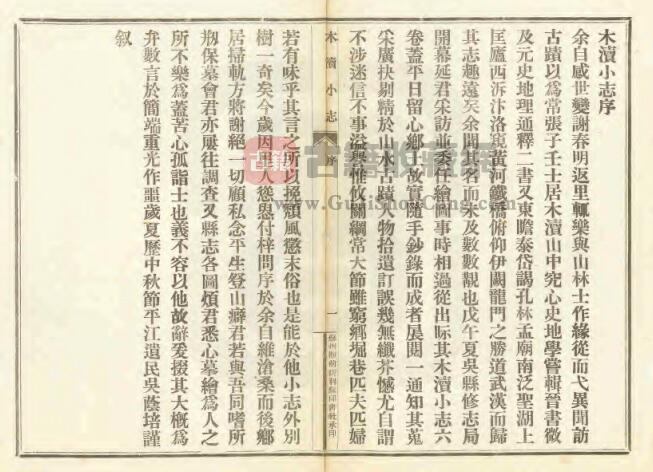 木瀆小志序
余自感世變謝春明返里輒樂與山林士作緣從而弋異聞訪
古蹟以爲常張子壬士居木瀆山中究心史地學嘗輯晉書徵
及元史地理通釋二書又東瞻泰岱謁孔林孟廟南泛聖湖上
匡廬西泝汴洛窺黃河鐵橋俯仰伊闕龍門之勝道武漢而歸
其志趣遠矣余聞其名而未及數數覯也戊午夏吳縣修志局
開幕延君采訪並委任繪圖事時相過從出眎其木瀆小志六
卷蓋平日留心鄉土故實隨手鈔錄而成者展閱一通知其蒐
采廣抉剔精於山水古蹟人物拾遺訂誤幾無纖芥憾尤自謂
不涉迷信不事溢譽惟攸關綱常大節雖窮鄉堀巷匹夫匹婦
木瀆小志
序
一
若有味乎其言之所以挽頹風懲末俗也是能於他小志外別
樹一奇矣今歲因里人慫恿付梓問序於余自維滄桑而後鄉
居掃軌方將謝絕一切顧私念平生登山癖君若與吾同嗜所
刱保墓會君亦屢往調查又縣志各圖煩君悉心摹繪爲人之
所不樂爲蓋苦心孤詣士也義不容以他故辭爰掇其大概爲
弁數言於簡端重光作噩歲夏歷中秋節平江遺民吳蔭培謹
叙
古籍
古籍收藏網
www.GuJiShouCang.com